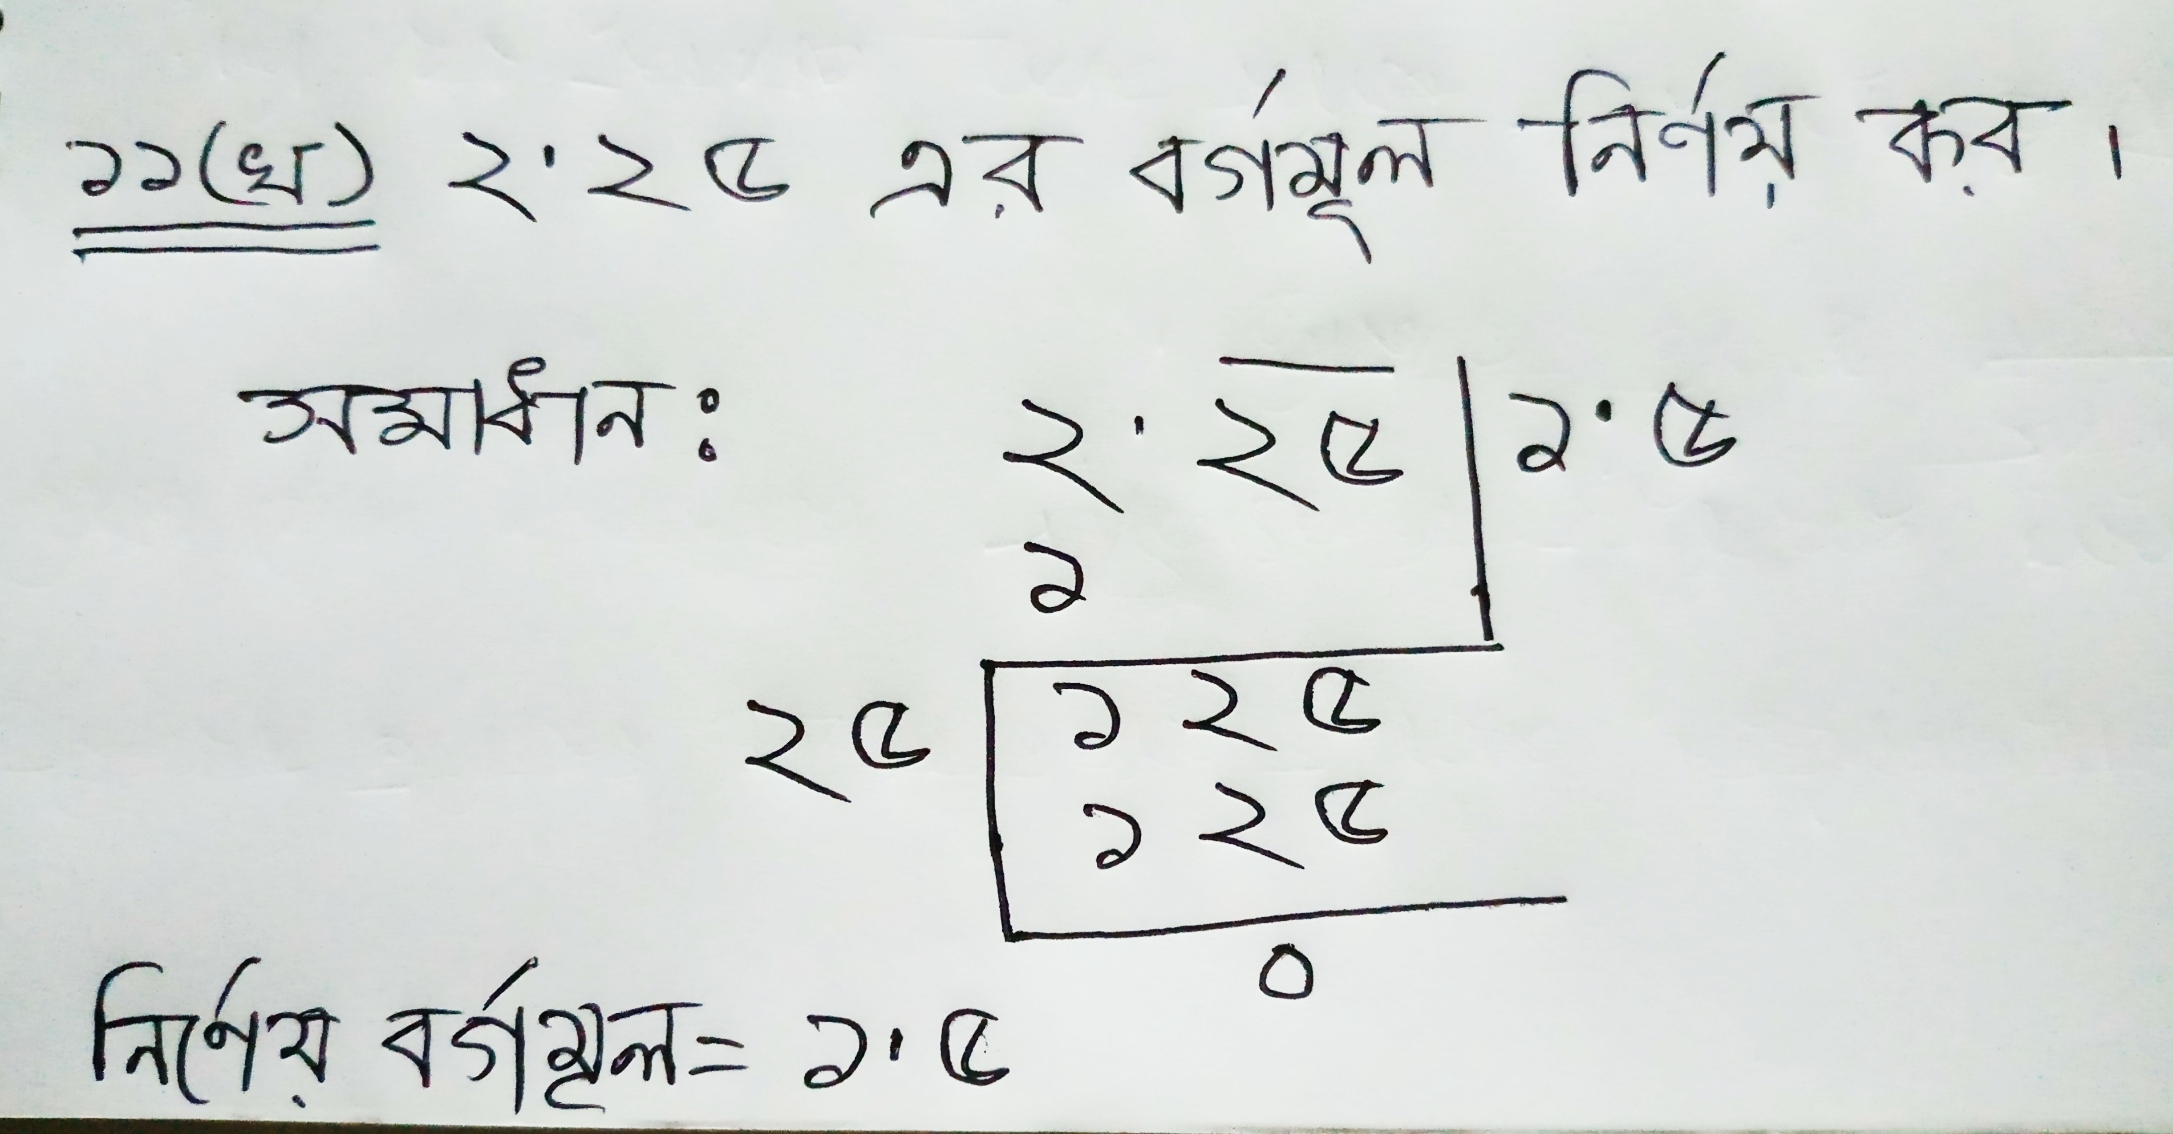 ১১(খ) ২·২৫ এর বর্গমূল নির্ণয় কর।
সমাধান: ২·২৫ | ১·৫
১
২৫ | ১২৫
১২৫
০
নির্ণেয় বর্গমূল= ১·৫